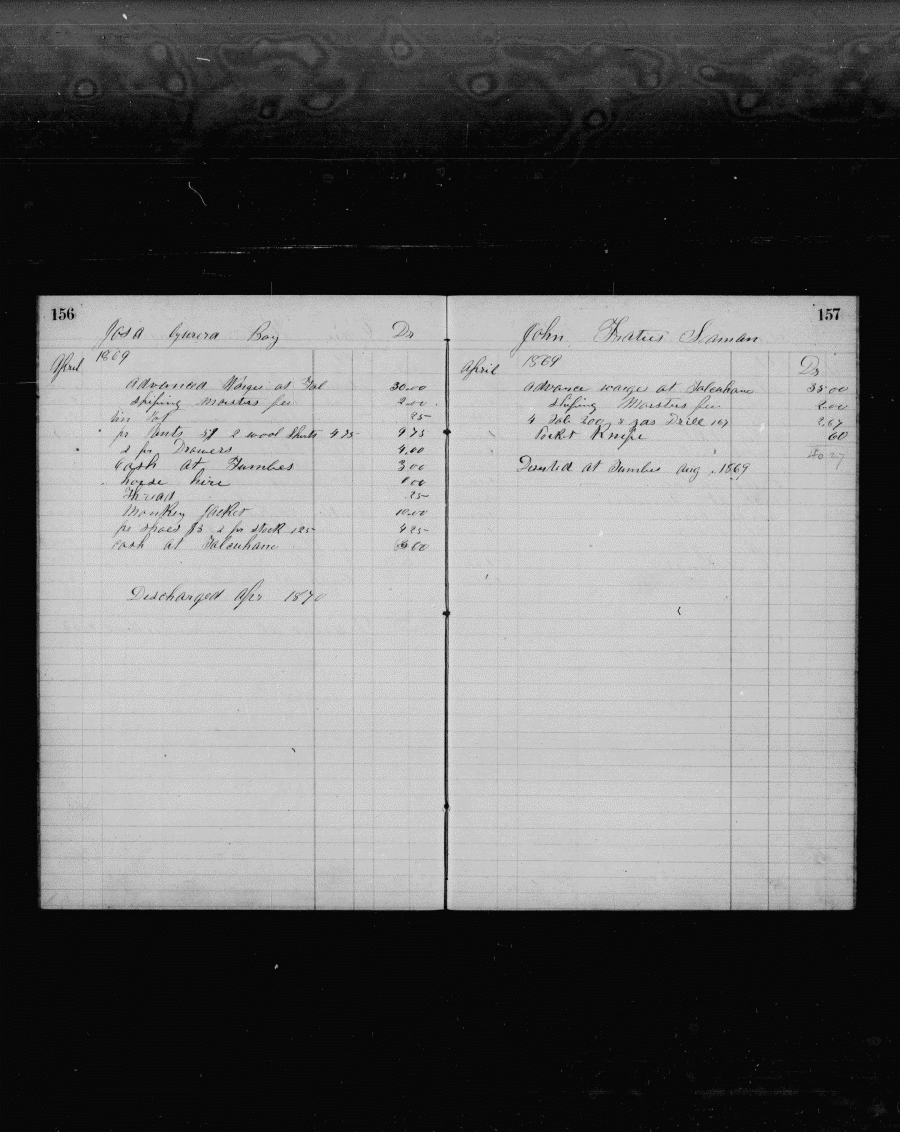 156
Josa Dr
April 1869
Advanced Wages at Tal 30.00
shiping masters fee 2.00
tin Pot 25
pr Pants 5 2 wool Shirts 4 75 9 75
2 pr Drawers 4.00
Cash at Tumbes 3 00
horse hire 1 00
Thread 25
Monkey Jacket 10.00
pr shoes $3 2 pr stock 1 25 4 25
cash at Talcuhano 00
Discharged Apr 1870
157
John Seaman
April 1869 Dr
Advance wages at Talcuhano 35.00
shiping Masters fee 2.00
4 Tob 200 Drill 2.67
Pocket Knife 60
40.27
at Tumbes Aug 1869